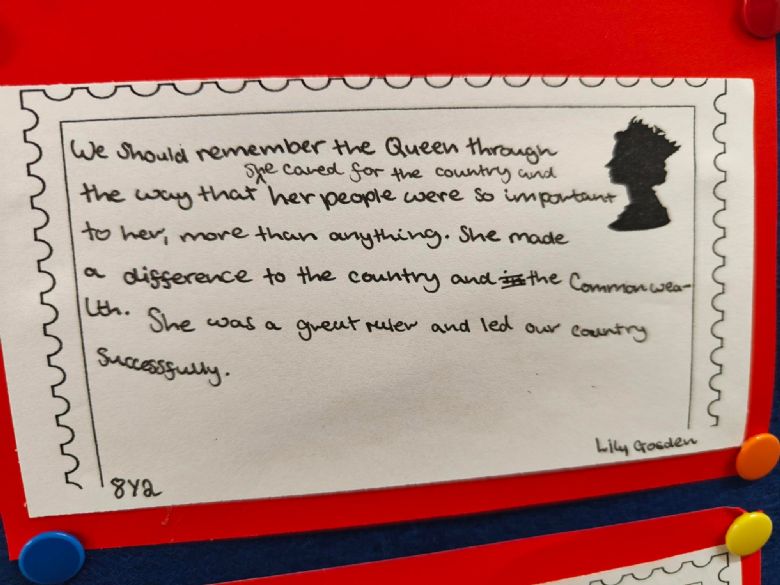 We should remember the Queen through
she cared for the country and
the way that her people were so important
to her, more than anything. She made
a difference to the country and the Commonwea-
lth. She was a great ruler and led our country
successfully.
Lily Gosden
8Y2